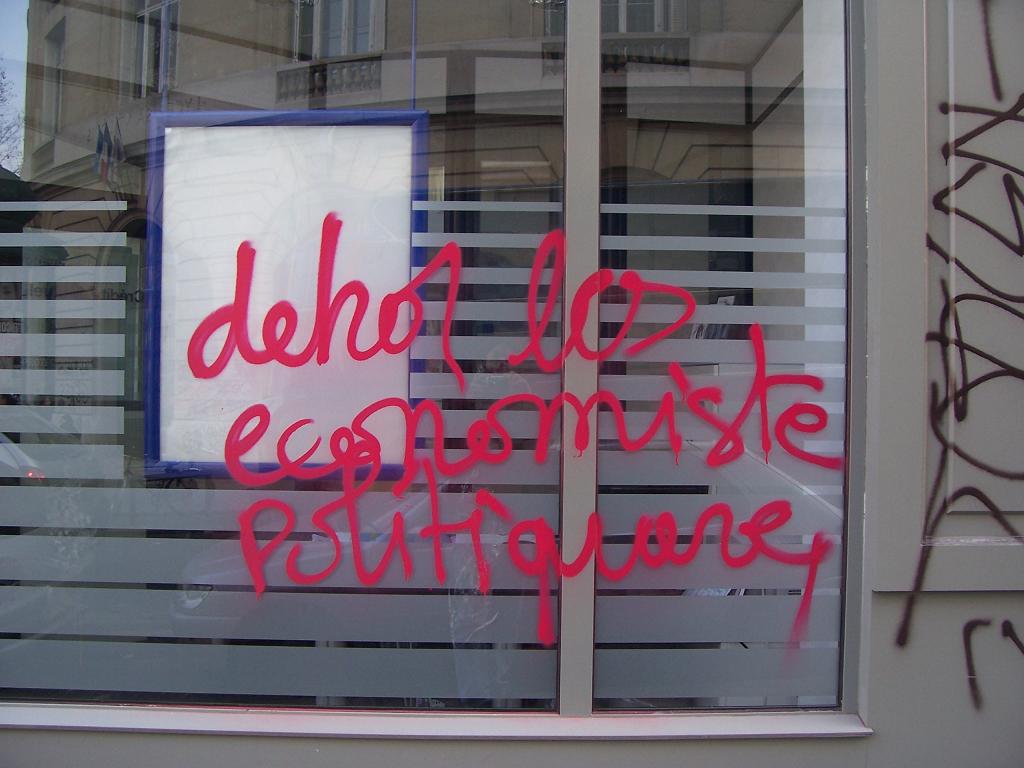 dehor los
economiste
politiquare,